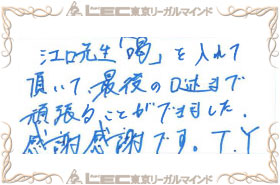 LEC東京リーガルマインド
江口先生「喝」を入れて
頂いて最後の口述まで
頑張ることができました。
感謝感謝です。T.Y
LEC東京リーガルマインド